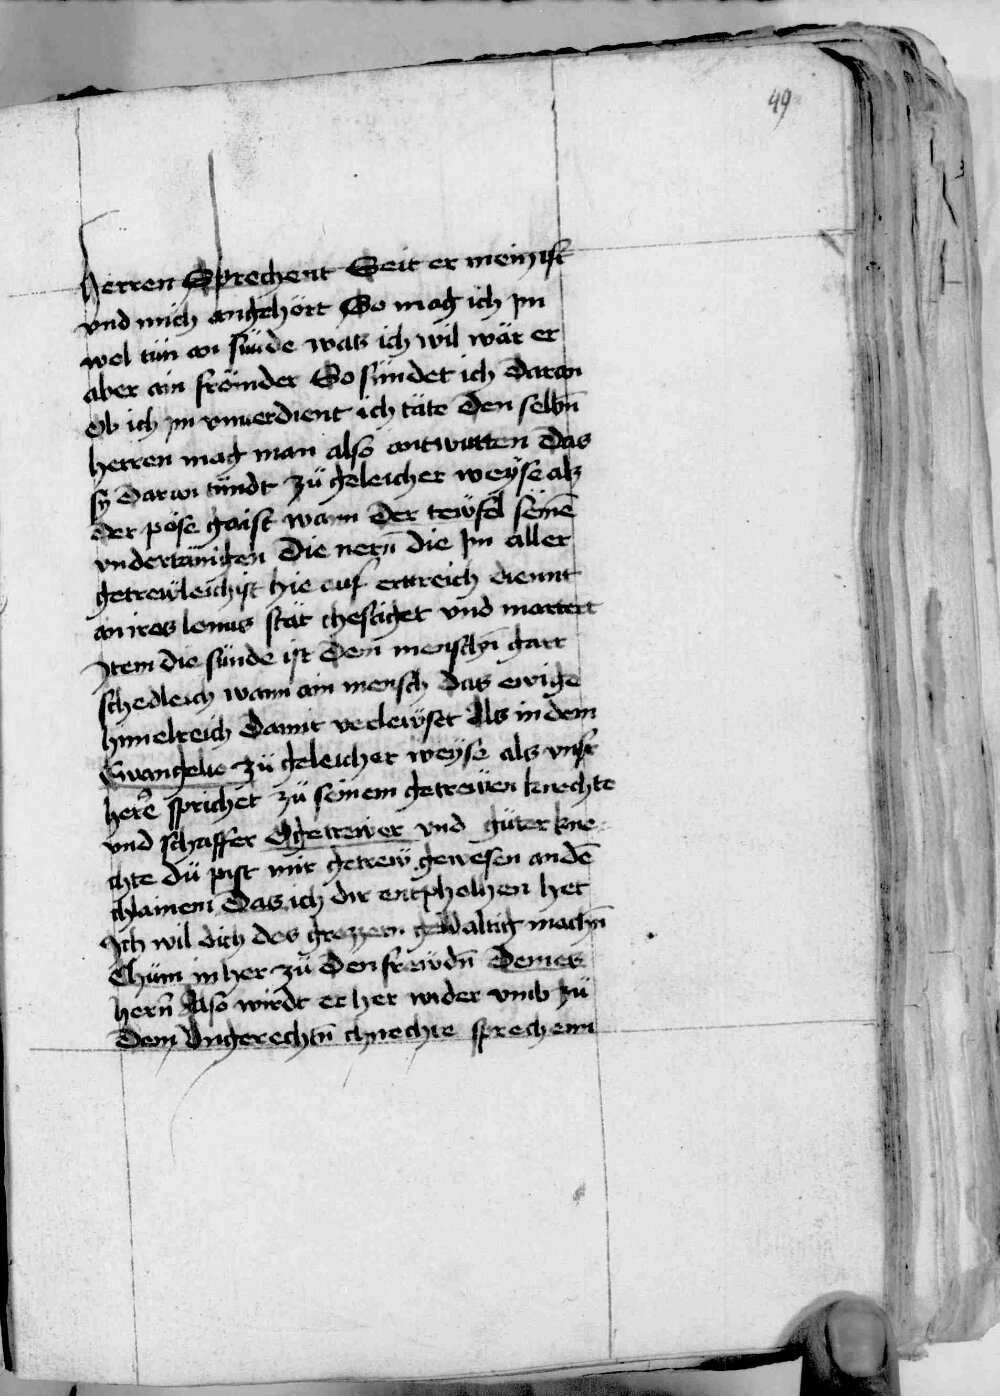 49
Herren Sprechent Seit er mein ist
vnd mich angehört So mag ich jm
wol tün an sünde was ich wil wär er
aber ain frömder So sündet ich Daran
Ob ich jm vnuerdient ich täte Den selbn̄
herren mag man also antwurten Das
sy Daran sündt zü geleicher weyse als
Der pöse gaist wann Der tewfel seinē
vndertänigen Die nern̄ die Im aller
getrewleichist hie auf ertreich diennt
an ires lemus stät chestiget vnd martert
Item die sünde ist Dem menschn̄ garr
schedleich wann ain mensch das ewige
himelreich Damit verlewset Als in dem
Ewangelio zü geleicher weyse als vnser
herē sprichet zü seinem getrewen knechte
vnd schaffer O getrewer vnd güter kne-
chte dü pist mir getrew gewesen an dē
chlainem Das ich dir entpholhen het
Ich wil dich des grozzern gewaltig machn̄
Chüm in her zü Den frewdn̄ Deines
hern̄ Also wirdt er her wider vmb zü
Dem vngerechtn̄ chnechte sprechenn